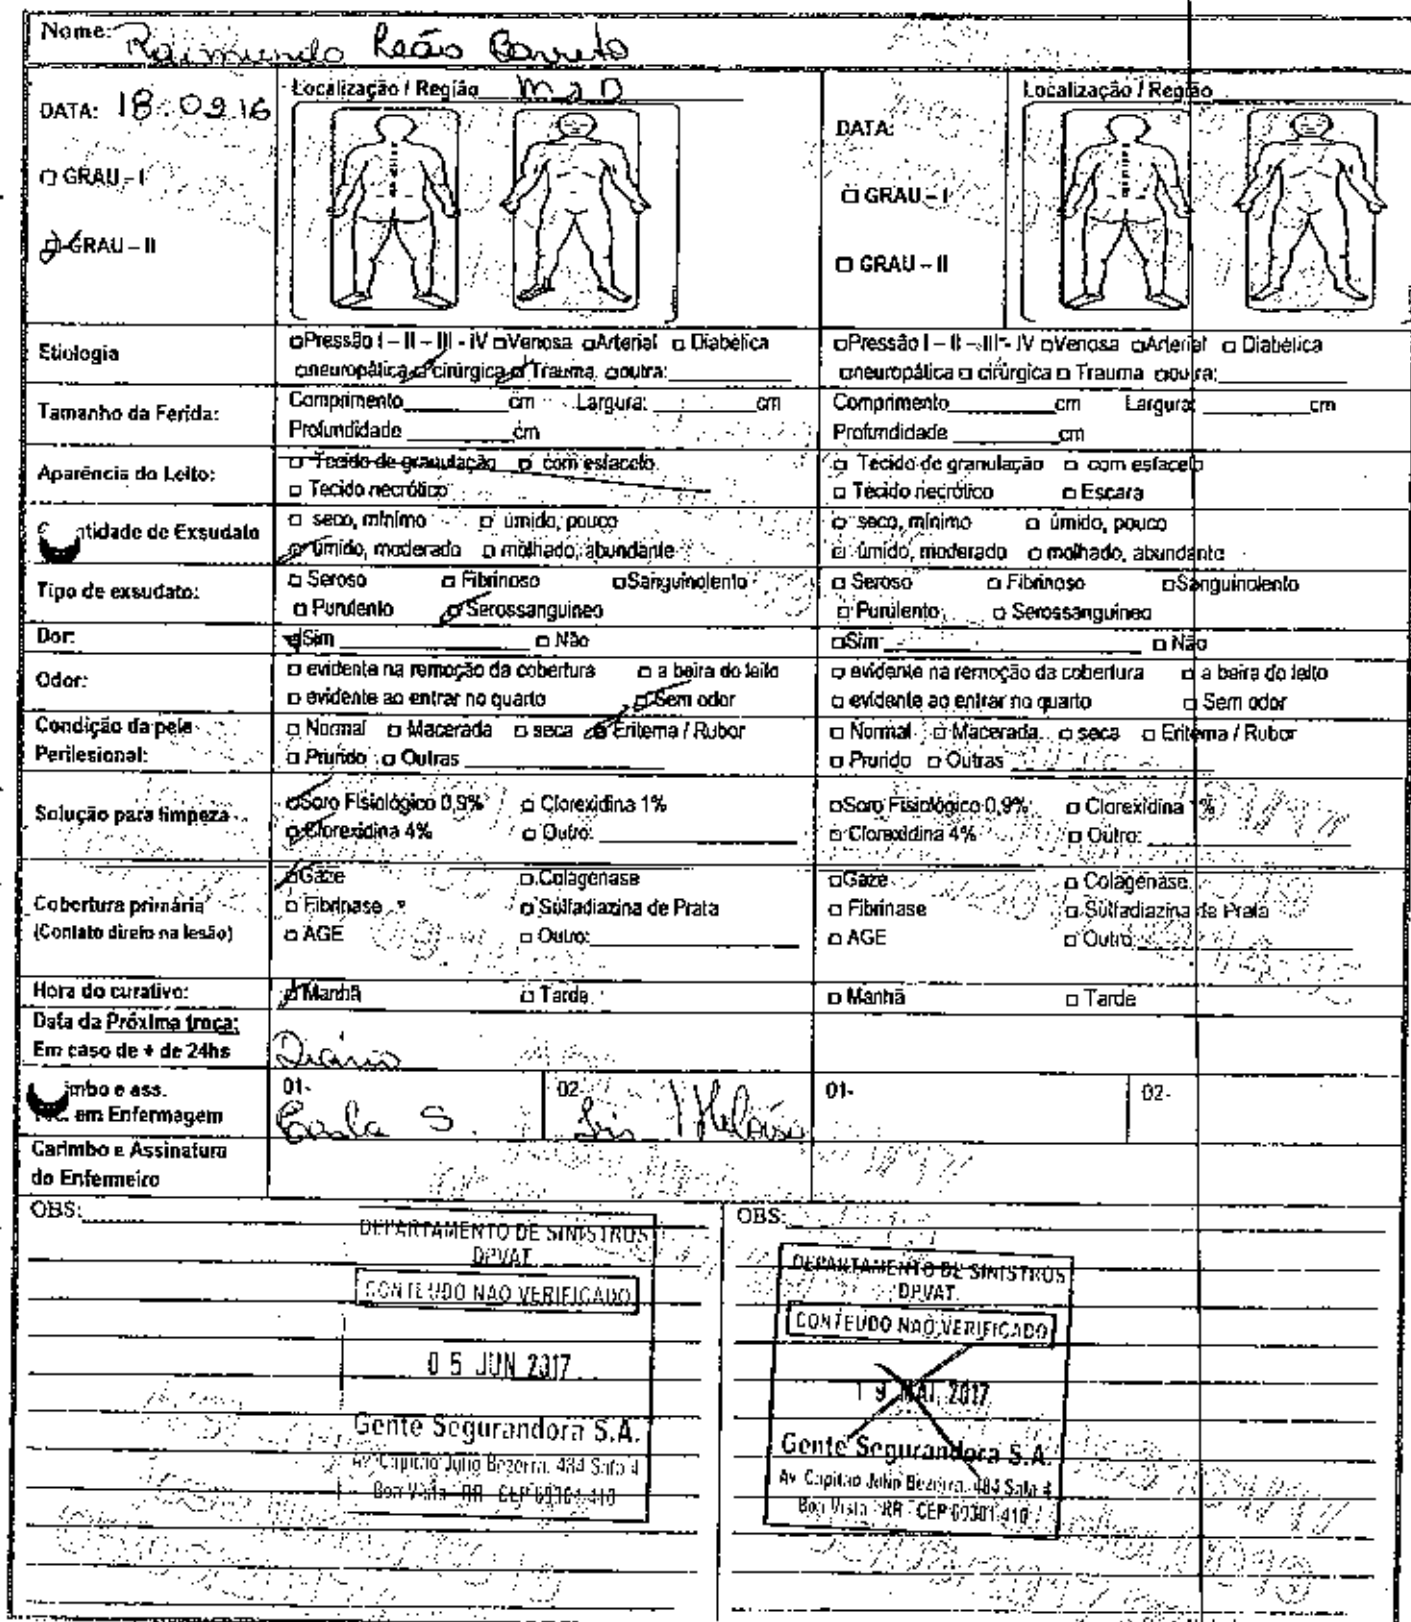 Nome: Raimundo Barreto
DATA: 18.09.16
□ GRAU - I
□ GRAU - II
Localização / Região
DATA:
□ GRAU - I
□ GRAU - II
Localização / Região
Etiologia
□Pressão I - II - III - IV □Venosa □Arterial □ Diabética
□neuropática □ cirúrgica □ Trauma □outra:
□Pressão I - II - III - IV □Venosa □Arterial □ Diabética
□neuropática □ cirúrgica □ Trauma □outra:
Tamanho da Ferida:
Comprimento cm Largura: cm
Profundidade cm
Comprimento cm Largura: cm
Profundidade cm
Aparência do Leito:
□ Tecido de granulação □ com esfacelo
□ Tecido necrótico
□ Tecido de granulação □ com esfacelo
□ Tecido necrótico □ Escara
de Exsudato
□ seco, mínimo □ úmido, pouco
□ úmido, moderado □ molhado, abundante
□ seco, mínimo □ úmido, pouco
□ úmido, moderado □ molhado, abundante
Tipo de exsudato:
□ Seroso □ Fibrinoso □Sanguinolento
□ Purulento □ Serossanguineo
□ Seroso □ Fibrinoso □Sanguinolento
□ Purulento □ Serossanguineo
Dor:
□Sim □ Não
□Sim □ Não
Odor:
□ evidente na remoção da cobertura □ a beira do leito
□ evidente ao entrar no quarto □ Sem odor
□ evidente na remoção da cobertura □ a beira do leito
□ evidente ao entrar no quarto □ Sem odor
Condição da pele
Perilesional:
□ Normal □ Macerada □ seca □ Eritema / Rubor
□ Prurido □ Outras
□ Normal □ Macerada □ seca □ Eritema / Rubor
□ Prurido □ Outras
Solução para limpeza
□Soro Fisiológico 0,9% □ Clorexidina 1%
□ Clorexidina 4% □ Outro:
□Soro Fisiológico 0,9% □ Clorexidina 1%
□ Clorexidina 4% □ Outro:
Cobertura primária
(Contato direto na lesão)
□Gaze □ Colagenase
□ Fibrinase □ Sulfadiazina de Prata
□ AGE □ Outro:
□Gaze □ Colagenase
□ Fibrinase □ Sulfadiazina de Prata
□ AGE □ Outro:
Hora do curativo:
□ Manhã □ Tarde
□ Manhã □ Tarde
Data da Próxima troca:
Em caso de + de 24hs
Diário
e ass.
em Enfermagem
01-
S.
02-
Heloisa
01-
02-
Carimbo e Assinatura
do Enfermeiro
OBS:
DEPARTAMENTO DE SINISTROS
DPVAT
CONTEUDO NAO VERIFICADO
05 JUN 2017
Gente Segurandora S.A.
Av. Capitao Julio Bezerra, 484 Sala 4
Boa Vista - RR - CEP 69301-410
OBS:
DEPARTAMENTO DE SINISTROS
DPVAT
CONTEUDO NAO VERIFICADO
19 MAI 2017
Gente Segurandora S.A.
Av. Capitao Julio Bezerra, 484 Sala 4
Boa Vista - RR - CEP 69301-410